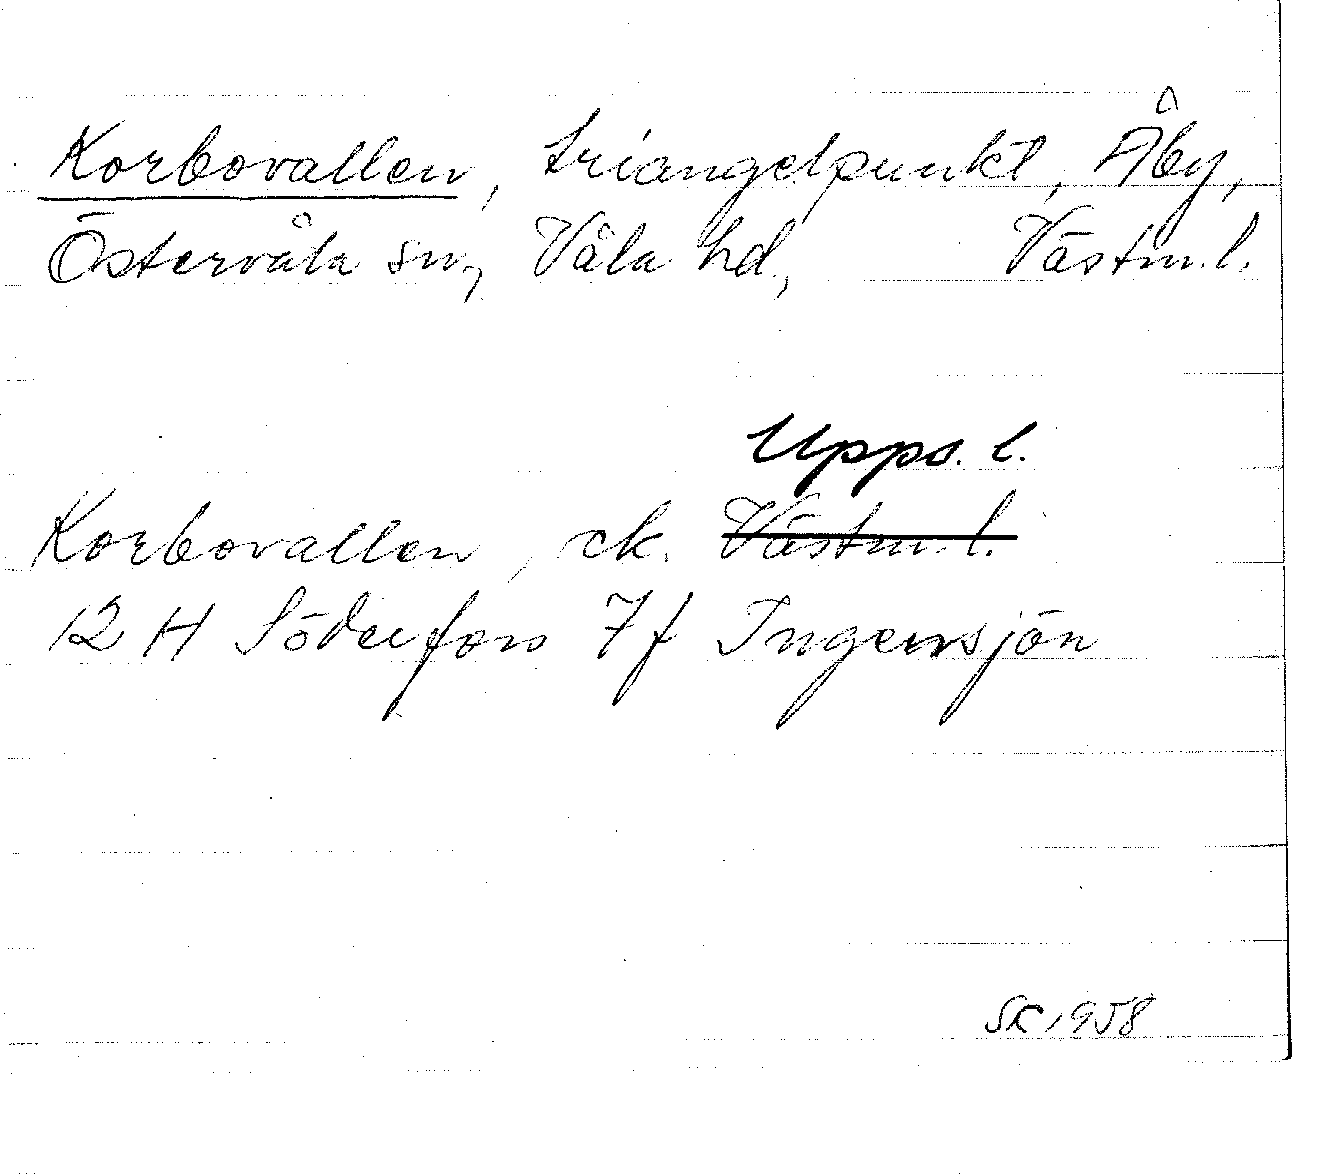 Korbovallen, triangelpunkt, Åby,
Östervåla sn, Våla hd, Västm. l.
Upps. l.
Korbovallen, ek. Västm. l.
12 H Söderfors 7f Ingersjön
SK 1958